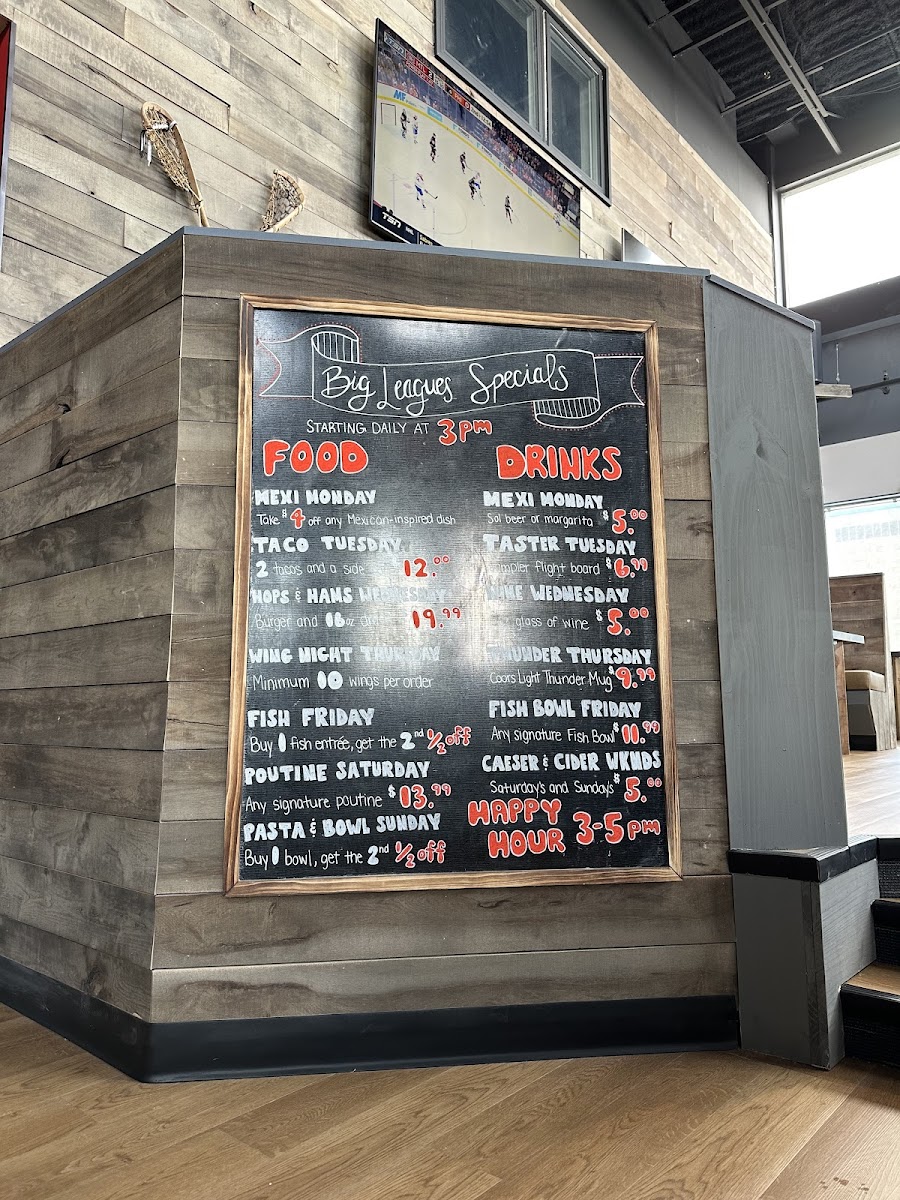 TSN
TSN
Big Leagues Specials
STARTING DAILY AT 3pm
FOOD
MEXI MONDAY
Take $4 off any Mexican-inspired dish
TACO TUESDAY
2 tacos and a side 12.00
HOPS & HANS WEDNESDAY
Burger and 16oz 19.99
WING NIGHT THURSDAY
Minimum 10 wings per order
FISH FRIDAY
Buy 1 fish entrée, get the 2nd 1/2 off
POUTINE SATURDAY
Any signature poutine $13.99
PASTA & BOWL SUNDAY
Buy 1 bowl, get the 2nd 1/2 off
DRINKS
MEXI MONDAY
Sol beer or margarita $5.00
TASTER TUESDAY
flight board $6.99
WINE WEDNESDAY
glass of wine $5.00
THUNDER THURSDAY
Coors Light Thunder Mug $9.99
FISH BOWL FRIDAY
Any signature Fish Bowl $11.99
CAESER & CIDER WKNDS
Saturday's and Sunday's $5.00
HAPPY
HOUR 3-5pm